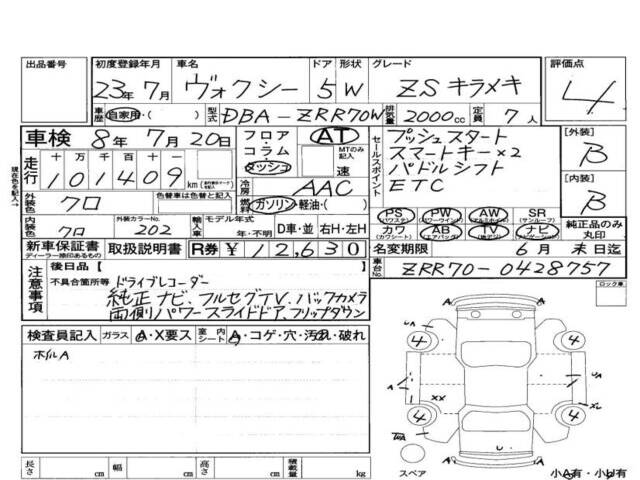 出品番号
初度登録年月
23年 7月
車名
ヴォクシー
ドア
5
形状
W
グレード
ZS キラメキ
評価点
4
車歴 自家用・( )
型式 DBA-ZRR70W
排気量 2000cc
定員 7人
車検 8年 7月 20日
フロア
コラム
ダッシュ
AT
MTのみ記入
速
セールスポイント
プッシュスタート
スマートキー×2
パドルシフト
ETC
[外装]
B
[内装]
B
走行
十 万 千 百 十
101409 km
冷房 AAC
外装色 クロ
色替車は色替と記入
燃料 ガソリン・軽油・( )
PS (パワステ)
PW (パワーウインド)
AW (アルミホイル)
SR (サンルーフ)
カワ (カワシート)
AB (エアバッグ)
TV (地デジ)
ナビ (ナビゲーション)
純正品のみ丸印
内装色 クロ
外装カラーNo. 202
輸入車
モデル年式
年・不明
D車・並
右H・左H
新車保証書
ディーラー捺印あるもの
取扱説明書
R券 ¥12,630
名変期限 6月 末日迄
車台No. ZRR70-0428757
注意事項
後日品【 】
不具合箇所等
ドライブレコーダー
純正ナビ、フルセグTV、バックカメラ
両側パワースライドドア、フリップダウン
ロック車
現在色を記入→
検査員記入
ガラス A・X要ス
室内シート A・コゲ・穴・汚れ・破れ
ホイルA
UA
A
4
4
A
A
XX
UA
A
4
4
U
スペア
小A有・小U有
長さ cm
幅 cm
高さ cm
積載量 kg